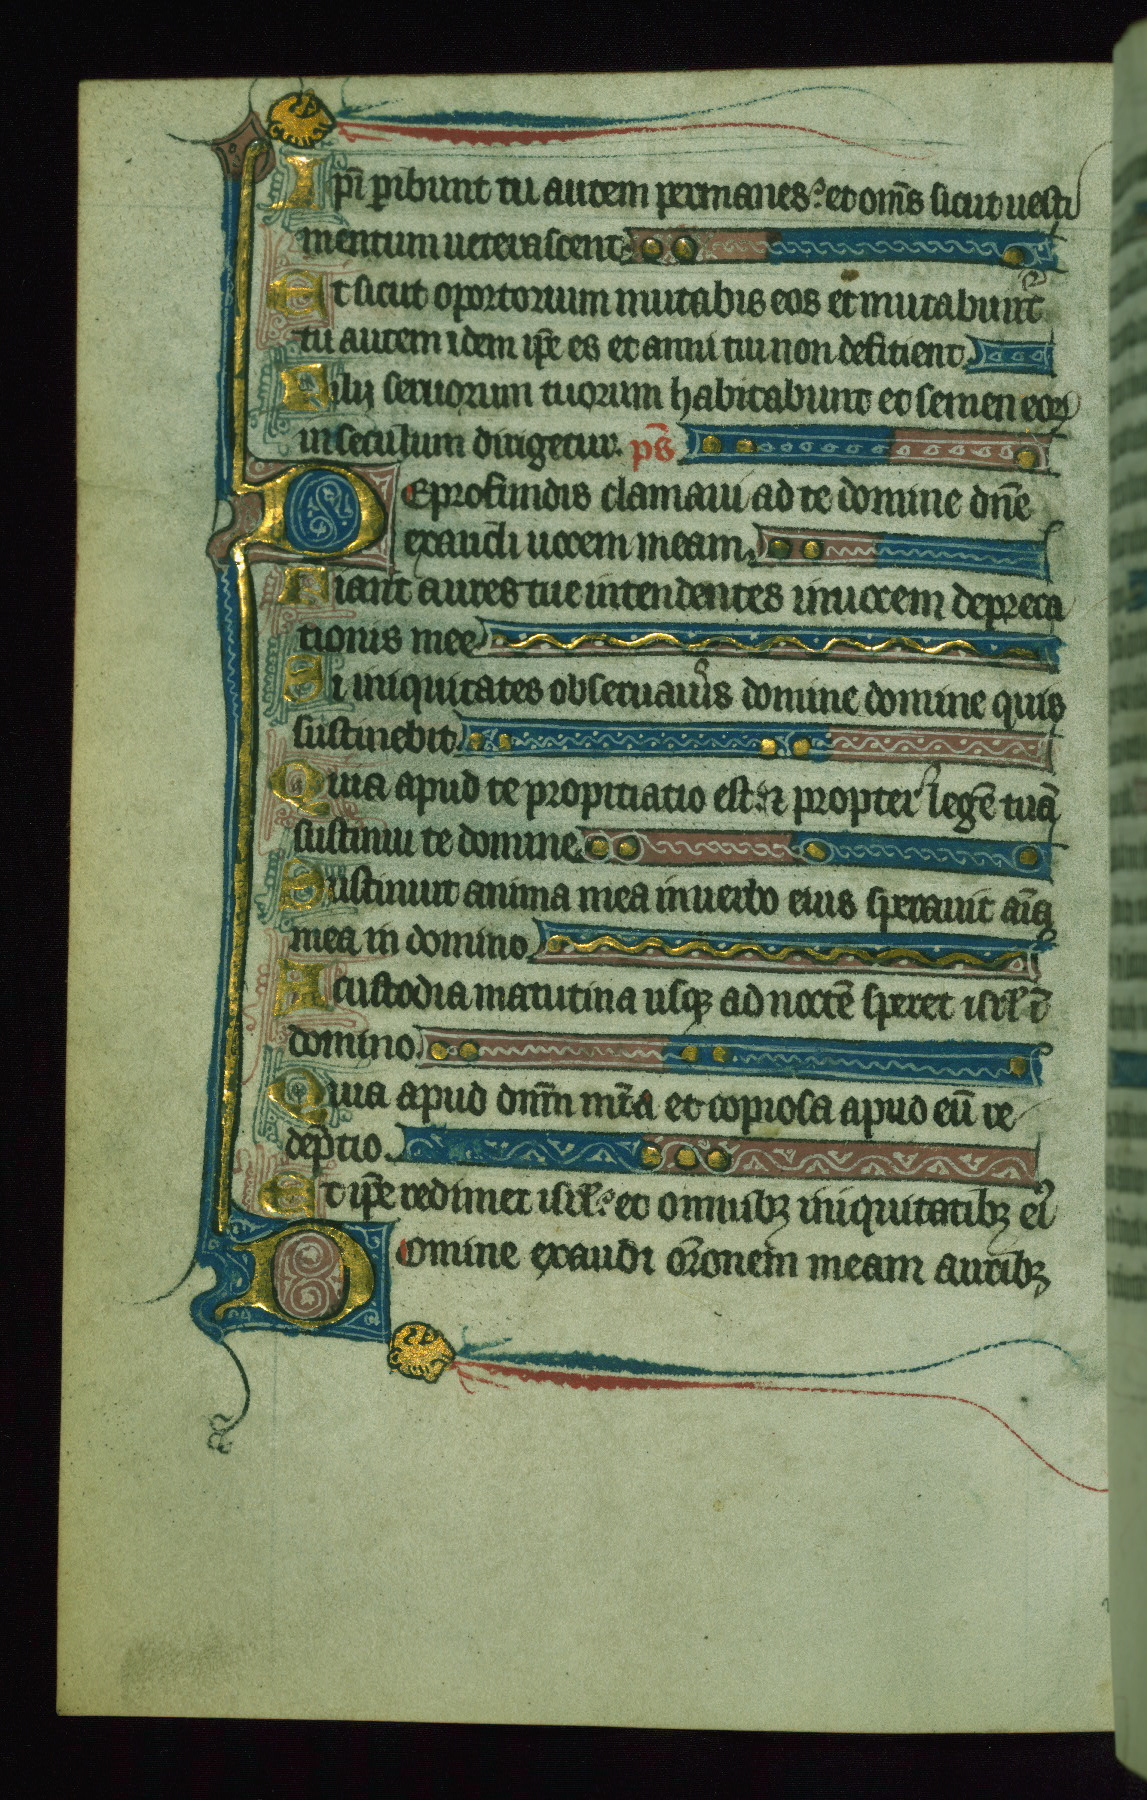 Ipi̅ p̲ibunt tu autem permanes: et om̅s sicut uesti
mentum ueterascent.
Et sicut oportorium mutabis eos et mutabunt̅
tu autem idem ip̅e es et anni tui non defitient.
Filij seruorum tuorum habitabunt et semen eoꝝ
in seculum dirigetur. ps̅
De profundis clamaui ad te domine dn̅e
exaudi uocem meam.
Fiant aures tue intendentes in uocem depreca
tionis mee
Si iniquitates obseruaũis domine domine quis
sustinebit.
Quia apud te propitiatio est: ⁊ propter lege̅ tua̅
sustinui te domine.
Sustinuit anima mea in uerbo eius sperauit ai̅a
mea in domino.
A custodia matutina usqꝫ ad nocte̅ speret isrl̅ i̅
domino.
Quia apud dn̅m mi̅a et copiosa apud eu̅ re
dep̅tio.
Et ip̅e redimet isrl̅: et omnibꝫ iniquitatibꝫ ei᾿
Domine exaudi or̅onem meam auribꝫ